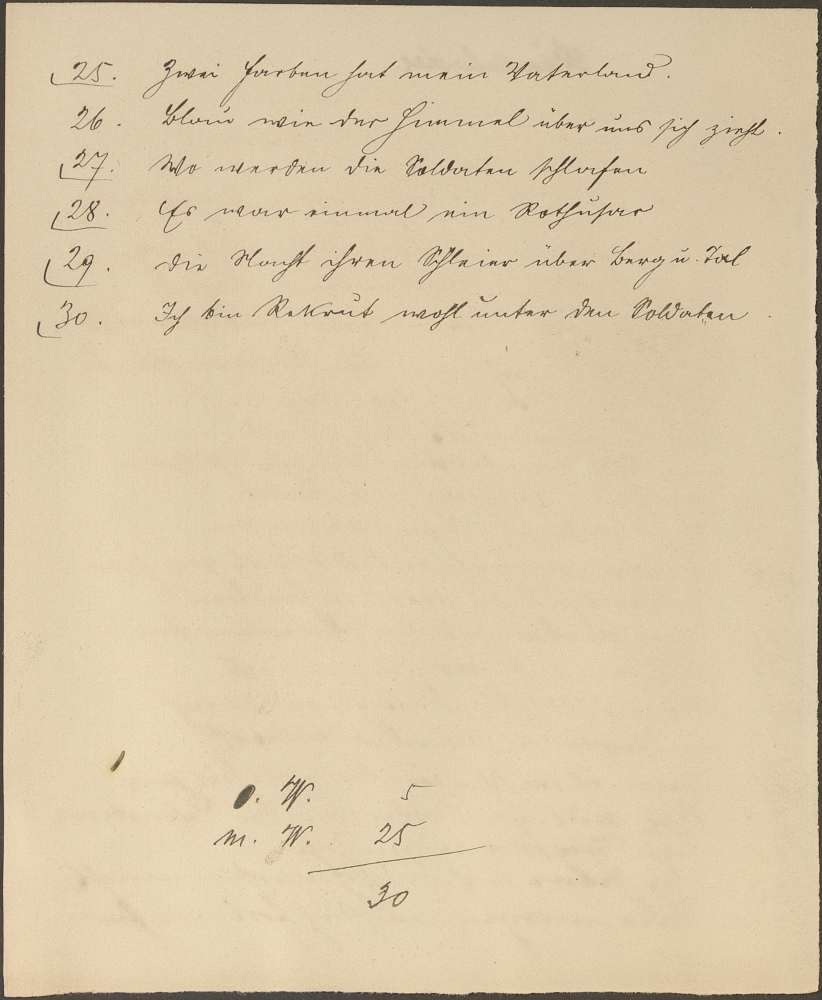 25. Zwei Farben hat mein Vaterland.
26. Blau wie der Himmel über uns sich zieht.
27. Wo werden die Soldaten schlafen
28. Es war einmal ein Rothusar
29. Die Nacht ihren Schleier über Berg u. Tal
30. Ich bin Rekrut wohl unter den Soldaten.
o. W. 5
m. W. 25
30